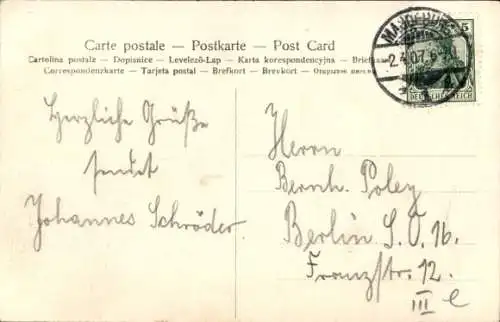 Carte postale – Postkarte – Post Card
Cartolina postale – Dopisnice – Levelező-Lap – Karta korespondencyjna – Briefkaart
Correspondenzkarte – Tarjeta postal – Brefkort – Brevkort – Открытое письмо
MAGDEBURG
2.4.07.
5
DEUTSCHES REICH
Herzliche Grüße
sendet
Johannes Schröder.
Herrn
Bernh. Poley
Berlin S.O. 16.
Franzstr. 12.
III e